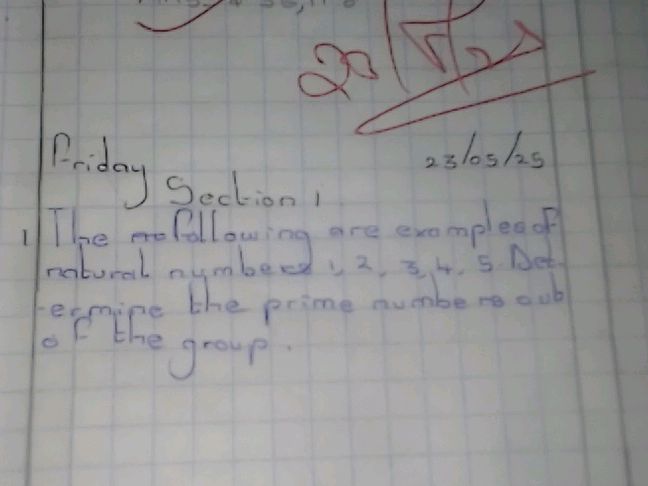 Friday
23/05/25
Section 1
1 The following are examples of
natural numbers 1, 2, 3, 4, 5. Det-
ermine the prime numbers out
of the group.